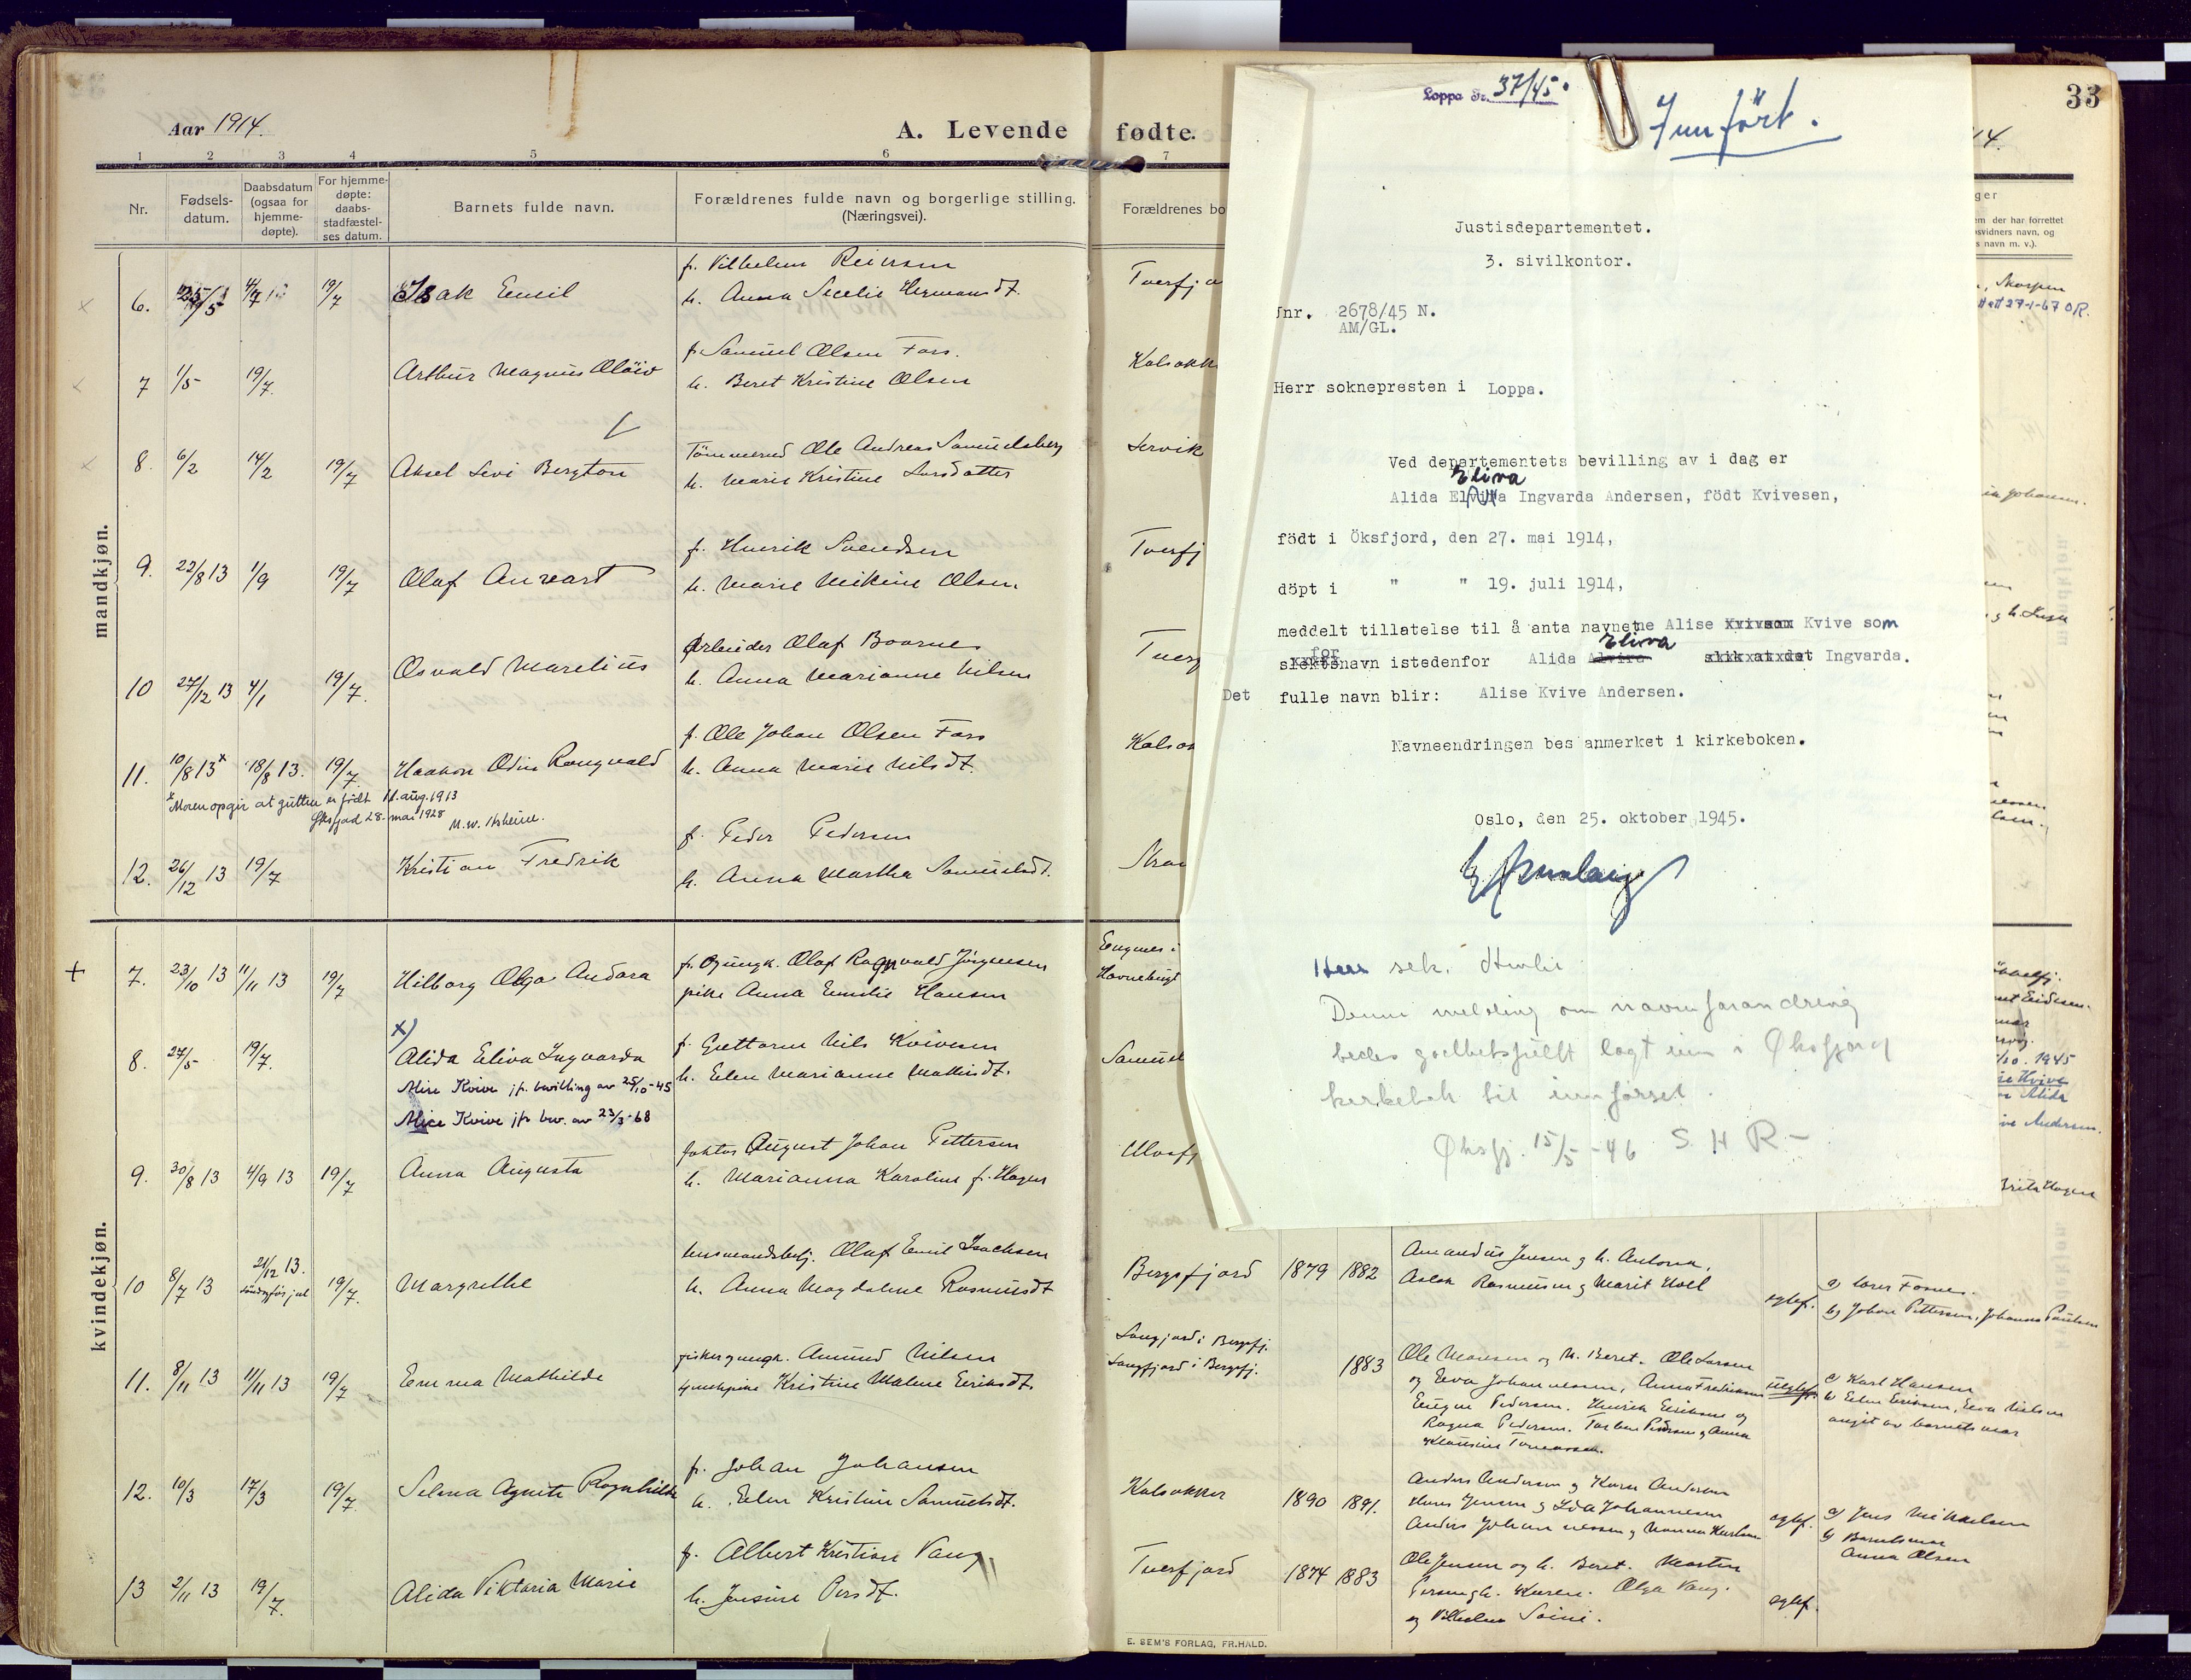 Aar 1914.
A. Levende fødte.
33
1 2 3 4 5 6 7
Nr.
Fødsels-
datum.
Daabsdatum
(ogsaa for
hjemme-
døpte).
For hjemme-
døpte:
daabs-
stadfæstel-
ses datum.
Barnets fulde navn.
Forældrenes fulde navn og borgerlige stilling.
(Næringsvei).
Forældrenes bo
mandkjøn.
6. 25/5 4/7 19/7 Isak Emil
f. Vilhelm Reiersen
h. Anna Secelie Hermansdt.
Tverfjo
7 1/5 19/7. Arthur Magnus Oläiv
f. Samuel Olsen Fors.
h. Beret Kristine Olsen
Kalsakk
8. 6/2 14/2 19/7 Aksel Levi Bergton
Tömmermd Ole Andreas Samuelsberg
h. Marie Kristine Larsdatter
Lervik
9. 22/8 13 1/9 19/7 Olaf Anvart
f. Henrik Svendsen
h. Marie Mikine Olsen.
Tverfj
10 27/12 13 4/1 19/7. Osvald Marelius
Arbeider Olaf Boarne
h. Anna Marianne Nilsen
Tverf
11. 10/8 13* 18/8 13. 19/7. Haakon Odin Rangvald
f. Ole Johan Olsen Fors
h. Anna Marie Nilsdt.
Kalsa
* Moren opgir at gutten er født 11. aug. 1913
Øksfjord 28. mai 1928
12. 26/12 13 19/7 Kristian Fredrik
f. Peder Pedersen
h. Anna Martha Samuelsdt.
kvindekjøn.
+ 7. 23/10 13 11/11 13 19/7 Hilborg Olga Andora
f. og ungk. Olaf Ragnvald Jörgensen
pike Anna Emilie Hansen
Havnebugt
x)
8. 27/5 19/7. Alida Eliva Ingvarda
f. Guttorm Nils Kvivesen
h. Elen Marianne Mathisdt.
Samuel
Alise Kvive jfr. bevilling av 25/10-45
Alice Kvive jfr. bev. av 23/3-68
9. 30/8 13 4/9 13 19/7 Anna Augusta
faktor August Johan Pettersen
h. Marianna Karoline f. Hagen
10 8/7 13 21/12 13. 19/7. Margrethe
husmandsbestj. Olaf Emil Isachsen
h. Anna Magdalene Rasmusdt
Bergsfjord 1879 1882
Amandus Jensen g h. Antona,
Aslak Rasmussen g Marit Hoel
egtef.
b) Johan Pettersen, Johanna Paulsen
11. 8/11 13 11/11 13 19/7 Emma Mathilde
fisker g ungk. Amund Nilsen
Kristine Malene Eriksdt.
Langfjord i Bergsfj.
Langfjord i Bergsfj.
1883
Ole Monsen og h. Beret. Ole Larsen
og Eva Johannessen, Anna Fredriksen
Eugen Pedersen. Henrik Eriksen og
Ragna Pedersen. Torben Pedersen g Anna
uegtef.
a) Karl Hansen
b) Elen Eriksen, Eva Nielsen
angit av barnets mor
12. 10/3 17/3 19/7. Selma Agnete Ragnhilde
f. Johan Johansen
h. Elen Kristine Samuelsdt.
Kalsakker 1890 1891.
Anders Andersen g Karen Andersen
Hans Jensen g Ida Johannesen
egtef.
a) Jens Mikkelsen
b) Barnets mor
Anna Olsen
13 2/11 13 19/7. Alida Viktoria Marie
f. Albert Kristian Vang
h. Jensine Persdt.
Tverfjord 1874 1883
Ole Jensen og h. Beret. Morten
Karen. Olga Vang.
og Vilhelm Soini.
egtef.
E. SEM'S FORLAG, FR.HALD.
Loppa Jr. 37/45.
Innført.
Justisdepartementet.
3. sivilkontor.
Jnr. 2678/45 N.
AM/GL.
Herr soknepresten i Loppa.
Ved departementets bevilling av i dag er
Eliva
Alida Elvira Ingvarda Andersen, födt Kvivesen,
födt i Öksfjord, den 27. mai 1914,
döpt i " " 19. juli 1914,
meddelt tillatelse til å anta navnetne Alise Kvivsom Kvive som
for Eliva
slektsnavn istedenfor Alida Alvira slik at det Ingvarda.
Det fulle navn blir: Alise Kvive Andersen.
Navneendringen bes anmerket i kirkeboken.
Oslo, den 25. oktober 1945.
Herr sek.
Denne melding om navneforandring
bedes godhetsfullt lagt inn i Øksfjord
kirkebok til innförsel.
Øksfj. 15/5-46 S. H R-
14.
ger
em der har forrettet
svidners navn, og
s navn m. v.).
27-1-67 OR.
/10. 1945